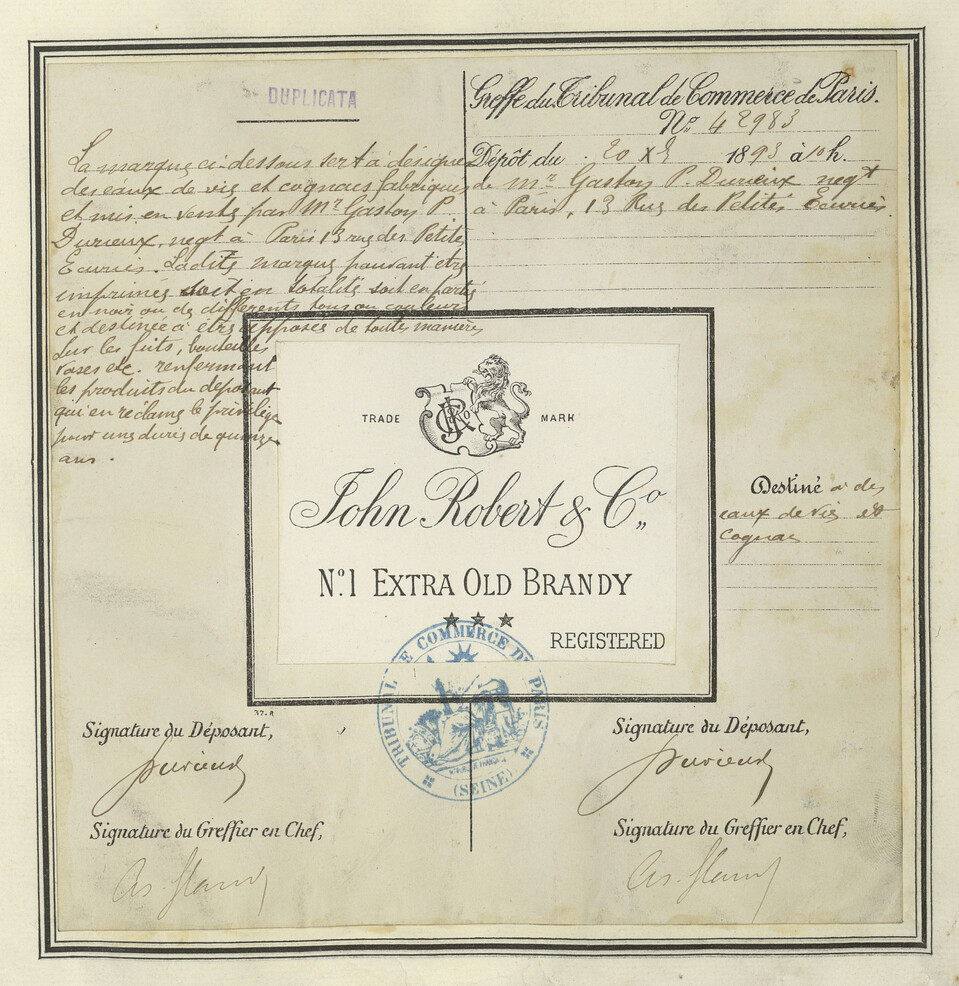 DUPLICATA
La marque ci-dessous sert à désigner
des eaux de vie et cognacs fabriqués
et mis en vente par Mr Gaston P.
Durieux, negt à Paris 13 rue des Petites
Ecuries. Ladite marque pouvant etre
imprimée soit en totalité soit en partie
en noir ou de différents tons ou couleurs
et destinée à être apposée de toute manière
sur les futs, bouteilles
vases etc. renfermant
les produits du déposant
qui en réclame le privilège
pour une durée de quinze
ans.
Greffe du Tribunal de Commerce de Paris.
No. 42983
Dépôt du 20 X 1893 à 10 h.
de Mr Gaston P. Durieux negt
à Paris, 13 Rue des Petites Ecuries.
TRADE MARK
John Robert & Co
No. 1 EXTRA OLD BRANDY
REGISTERED
Destiné à des
eaux de vie et
Cognac
TRIBUNAL DE COMMERCE DE PARIS
(SEINE)
37.8
Signature du Déposant,
Durieux
Signature du Greffier en Chef,
Signature du Déposant,
Durieux
Signature du Greffier en Chef,